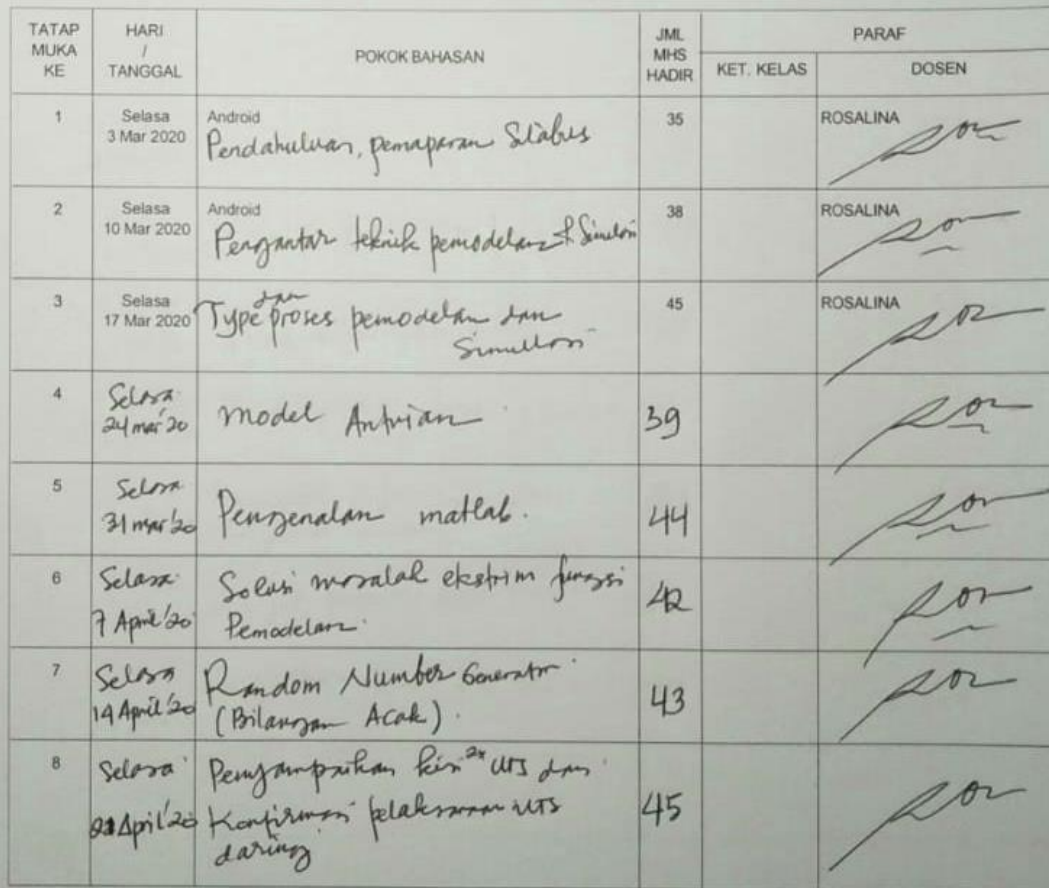 TATAP MUKA KE HARI / TANGGAL POKOK BAHASAN JML MHS HADIR PARAF
KET. KELAS DOSEN
1 Selasa 3 Mar 2020 Android 35 ROSALINA
Pendahuluan, pemaparan Silabus
2 Selasa 10 Mar 2020 Android 38 ROSALINA
Pengantar teknik pemodelan & Simulasi
3 Selasa 17 Mar 2020 Type dan proses pemodelan dan 45 ROSALINA
Simullasi
4 Selasa 24 mar'20 model Antrian 39
5 Selasa 31 mar'20 Pengenalan matlab. 44
6 Selasa 7 April'20 Solusi masalah ekstrim fungsi 42
Pemodelan.
7 Selasa 14 April'20 Random Number Generator 43
(Bilangan Acak).
8 Selasa 21 April'20 Penyampaikan kisi2x UTS dan 45
Konfirmasi pelaksanaan UTS
daring